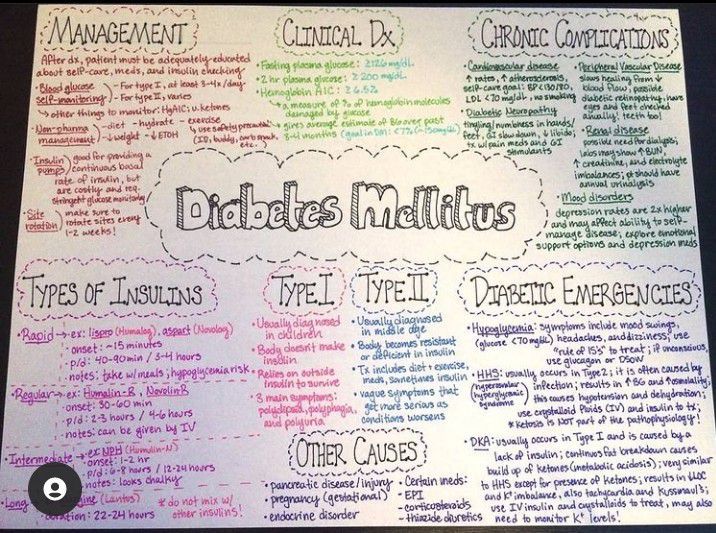 MANAGEMENT
After dx, patient must be adequately educated
about self-care, meds, and insulin checking
• Blood glucose
self-monitoring
- For type I, at least 3-4x/day
- for type II, varies
↳ other things to monitor: HgA1C; u. ketones
• Non-pharma
management
- diet - hydrate - exercise
- ↓weight - ↓ETOH
↳ use safety precautions
(ID, buddy, carb snack,
etc.)
• Insulin
pumps
good for providing a
continuous basal
rate of insulin, but
are costly and req.
stringent glucose monitoring
• Site
rotation
make sure to
rotate sites every
1-2 weeks!
CLINICAL DX
• Fasting plasma glucose: ≥126 mg/dL
• 2 hr plasma glucose: ≥ 200 mg/dL
• Hemoglobin A1C: ≥ 6.5%
↳ a measure of % of hemoglobin molecules
damaged by glucose
↳ gives average estimate of BG over past
3-4 months (goal in DM: <7% (~150mg/dL)
CHRONIC COMPLICATIONS
• Cardiovascular disease
↑ rates, ↑ atherosclerosis,
self-care goal: BP <130/80,
LDL <70 mg/dL, no smoking
• Diabetic Neuropathy
tingling/numbness in hands/
feet, GI slow down, ↓ libido;
tx w/ pain meds and GI
stimulants
• Peripheral Vascular Disease
slows healing from ↓
blood flow, possible
diabetic retinopathy, have
eyes and feet checked
annually! teeth too!
• Renal disease
possible need for dialysis;
labs may show ↑ BUN,
↑ creatinine, and electrolyte
imbalances; pt should have
annual urinalysis
• Mood disorders
depression rates are 2x higher
and may affect ability to self-
manage disease; explore emotional
support options and depression meds
Diabetes Mellitus
TYPES OF INSULINS
• Rapid → ex: lispro (Humalog), aspart (Novolog)
onset: ~15 minutes
p/d: 40-90 min / 3-4 hours
notes: take w/ meals, hypoglycemia risk
• Regular → ex: Humalin-R, Novolin-R
onset: 30-60 min
p/d: 2-3 hours / 4-6 hours
notes: can be given by IV
• Intermediate → ex: NPH (Humulin-N)
onset: 1-2 hr
p/d: 6-8 hours / 12-24 hours
notes: looks chalky
• Long
(Lantus)
duration: 22-24 hours
* do not mix w/
other insulins!
TYPE I
• Usually diagnosed
in children
• Body doesn't make
insulin
• Relies on outside
insulin to survive
• 3 main symptoms:
polydipsia, polyphagia,
and polyuria
TYPE II
• Usually diagnosed
in middle age
• Body becomes resistant
or deficient in insulin
• Tx includes diet + exercise,
meds, sometimes insulin
• vague symptoms that
get more serious as
conditions worsens
OTHER CAUSES
• pancreatic disease/injury
• pregnancy (gestational)
• endocrine disorder
• Certain meds:
- EPI
- corticosteroids
- thiazide diuretics
DIABETIC EMERGENCIES
• Hypoglycemia: symptoms include mood swings,
(glucose <70 mg/dL) headaches, and dizziness; use
"rule of 15s" to treat; if unconscious,
use glucagon or D50W
• HHS: usually occurs in Type 2; it is often caused by
(hyperosmolar
hyperglycemic
syndrome)
infection; results in ↑ BG and ↑ osmolality;
this causes hypotension and dehydration;
use crystalloid fluids (IV) and insulin to tx;
* ketosis is NOT part of the pathophysiology!
• DKA: usually occurs in Type I and is caused by a
lack of insulin; continuous fat breakdown causes
build up of ketones (metabolic acidosis); very similar
to HHS except for presence of ketones; results in ↓LOC
and K⁺ imbalance, also tachycardia and Kussmaul's;
use IV insulin and crystalloids to treat, may also
need to monitor K⁺ levels!